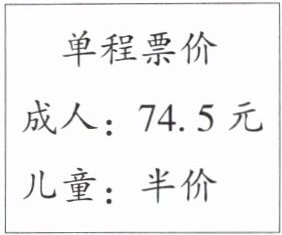 单程票价
成人：74.5元
儿童：半价